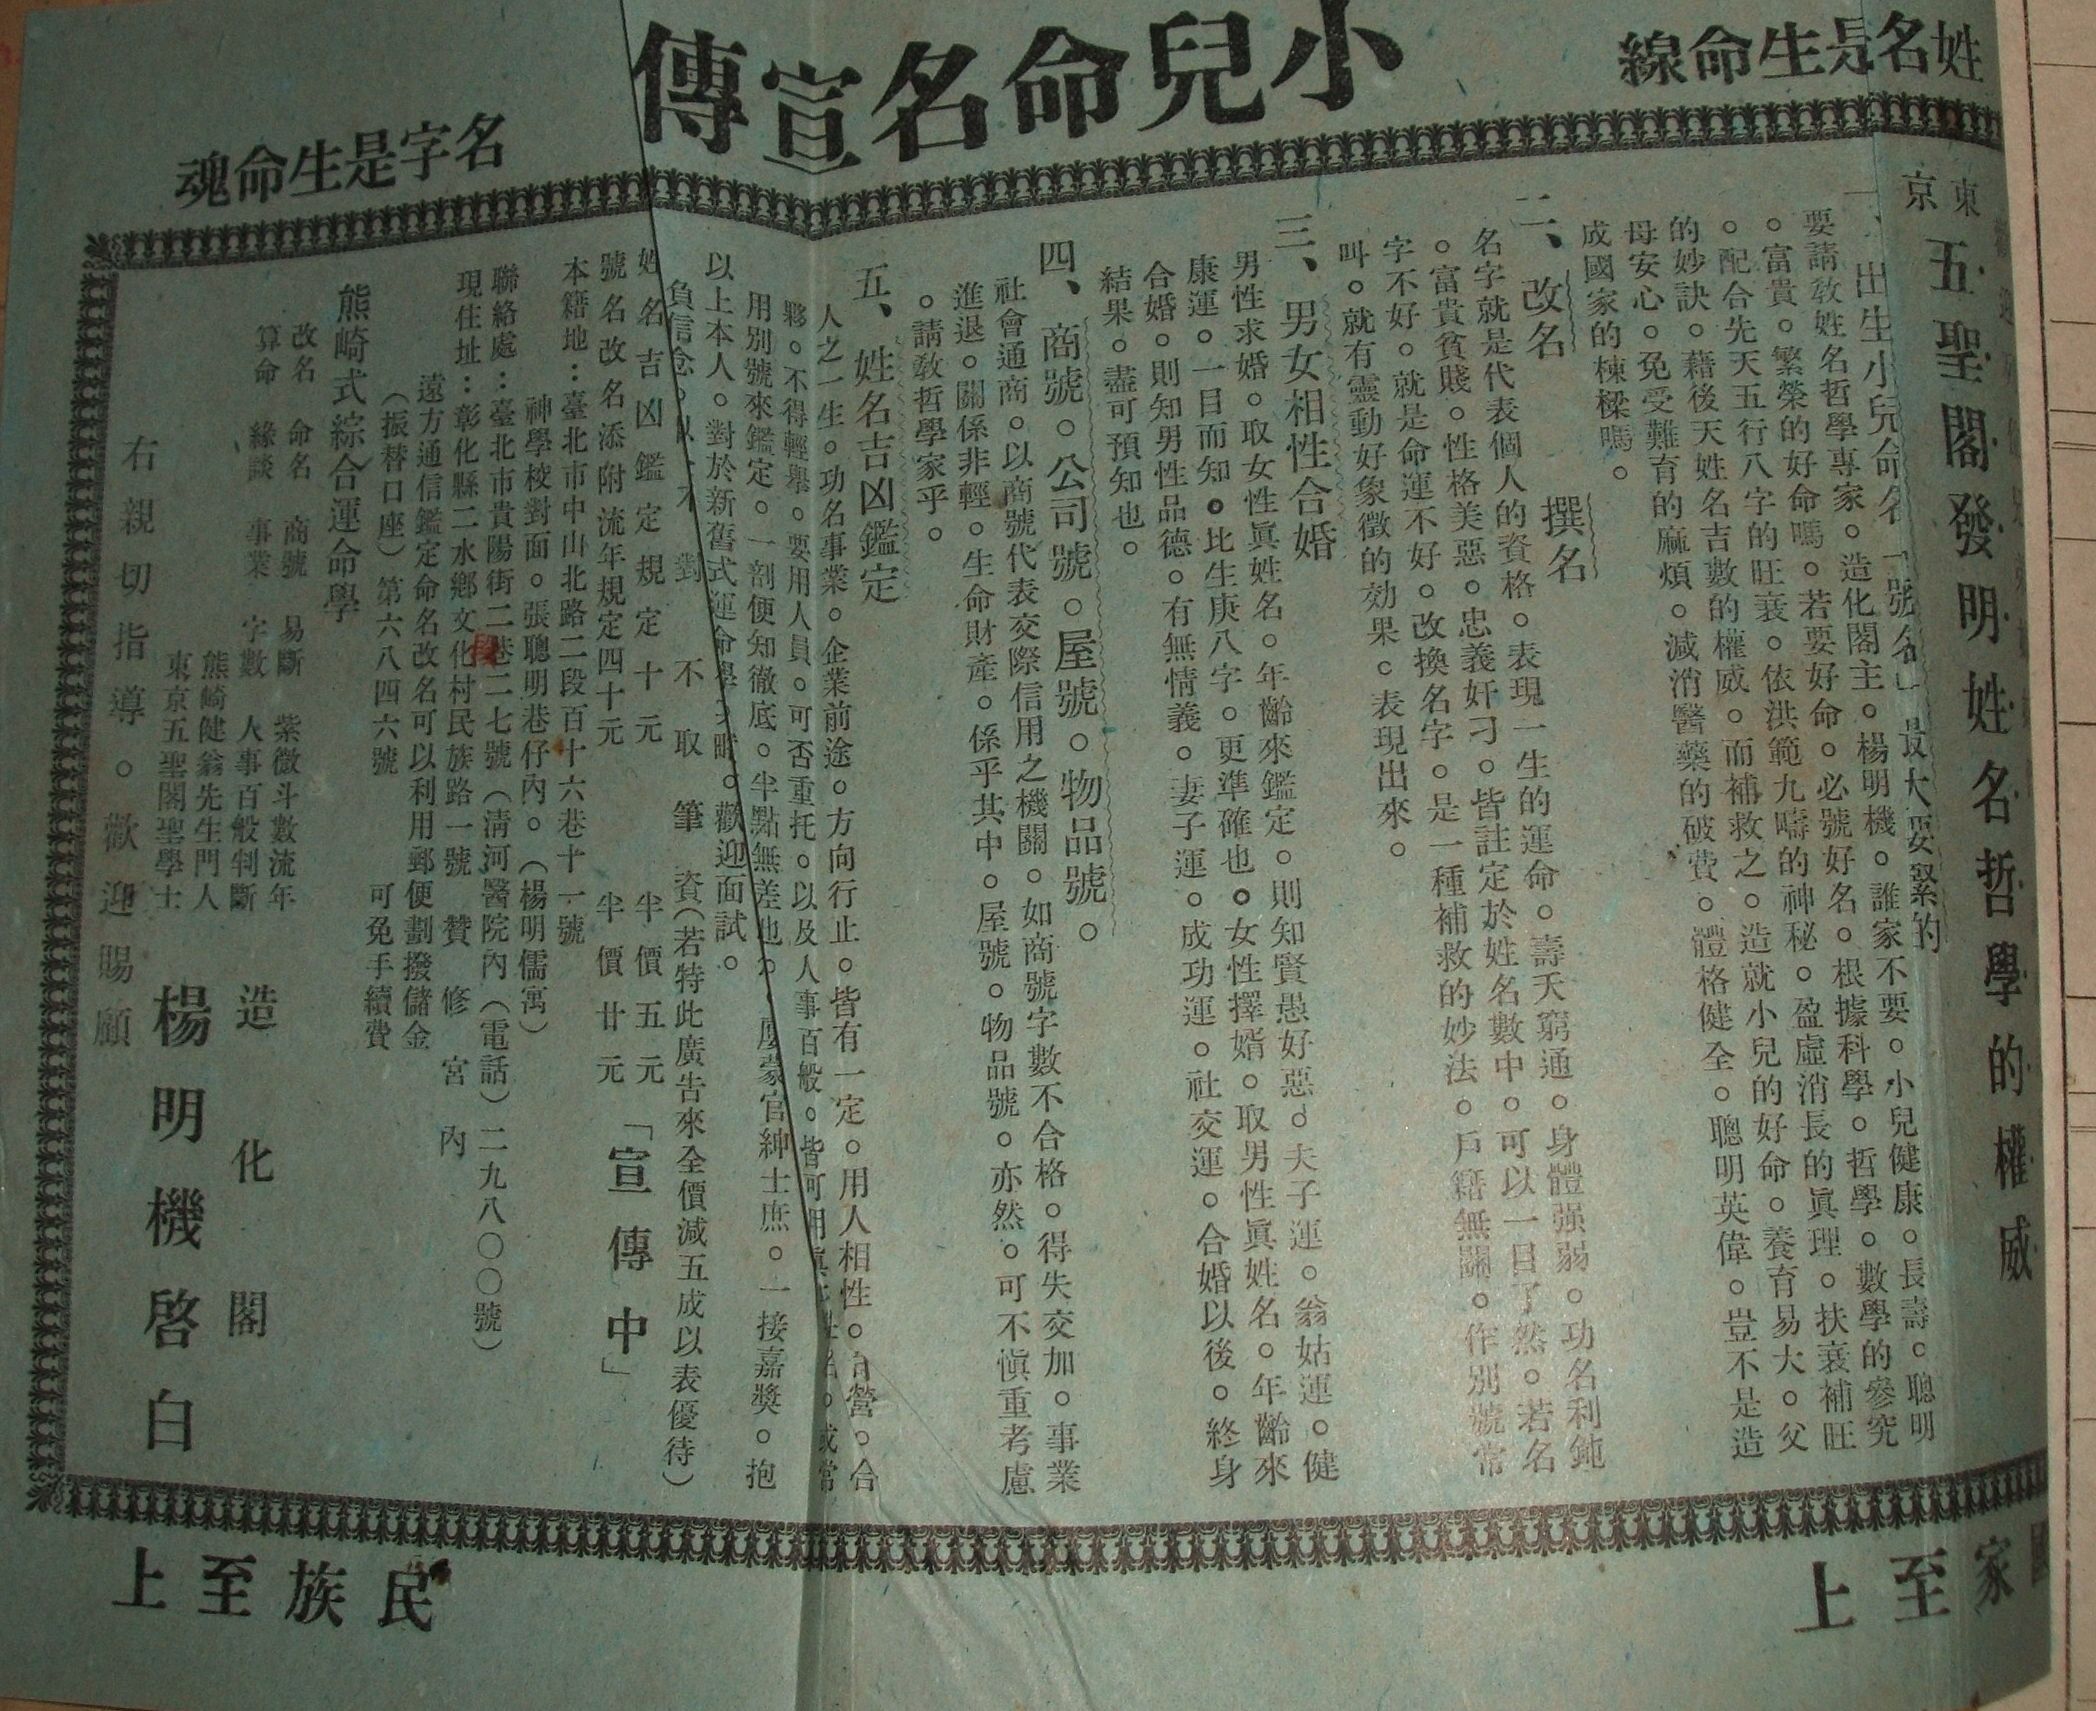 小兒命名宣傳
姓名是生命線
名字是生命魂
東京五聖閣發明姓名哲學的權威
一、出生小兒命名「號名」最大要緊的
要請教姓名哲學專家。造化閣主。楊明機。誰家不要。小兒健康。長壽。聰明
。富貴。繁榮的好命嗎。若要好命。必號好名。根據科學。哲學。數學的參究
。配合先天五行八字的旺衰。依洪範九疇的神秘。盈虛消長的眞理。扶衰補旺
的妙訣。藉後天姓名吉數的權威。而補救之。造就小兒的好命。養育易大。父
母安心。免受難育的麻煩。減消醫藥的破費。體格健全。聰明英偉。豈不是造
成國家的棟樑嗎。
二、改名 撰名
名字就是代表個人的資格。表現一生的運命。壽夭窮通。身體强弱。功名利鈍
。富貴貧賤。性格美惡。忠義奸刁。皆註定於姓名數中。可以一目了然。若名
字不好。就是命運不好。改換名字。是一種補救的妙法。戶籍無關。作別號常
叫。就有靈動好象徵的効果。表現出來。
三、男女相性合婚
男性求婚。取女性眞姓名。年齡來鑑定。則知賢愚好惡。夫子運。翁姑運。健
康運。一目而知。比生庚八字。更準確也。女性擇婿。取男性眞姓名。年齡來
合婚。則知男性品德。有無情義。妻子運。成功運。社交運。合婚以後。終身
結果。盡可預知也。
四、商號。公司號。屋號。物品號。
社會通商。以商號代表交際信用之機關。如商號字數不合格。得失交加。事業
進退。關係非輕。生命財產。係乎其中。屋號。物品號。亦然。可不愼重考慮
。請敎哲學家乎。
五、姓名吉凶鑑定
人之一生。功名事業。企業前途。方向行止。皆有一定。用人相性。合營。合
夥。不得輕擧。要用人員。可否重托。以及人事百般。皆可用眞姓名。或當
用別號來鑑定。一剖便知徹底。半點無差也。屢蒙官紳士庶。一接嘉獎。抱
以上本人。對於新舊式運命學。歡迎面試。
負信念。以上不對 不取筆資(若特此廣告來全價減五成以表優待)
姓名吉凶鑑定規定十元 半價五元
號名改名添附流年規定四十元 半價廿元 「宣傳中」
本籍地：臺北市中山北路二段百十六巷十一號
神學校對面。張聰明巷仔內。(楊明儒寓)
聯絡處：臺北市貴陽街二段二巷二七號(清河醫院內(電話)二九八〇〇號)
現住址：彰化縣二水鄉文化村民族路一號 贊修宮內
遠方通信鑑定命名改名可以利用郵便劃撥儲金
(振替口座)第六八四六號 可免手續費
熊崎式綜合運命學
改名 命名 商號 易斷 紫微斗數流年
算命 緣談 事業 字數 人事百般判斷
熊崎健翁先生門人
東京五聖閣聖學士
造化閣
楊明機啓白
右親切指導。歡迎賜顧
國家至上
民族至上